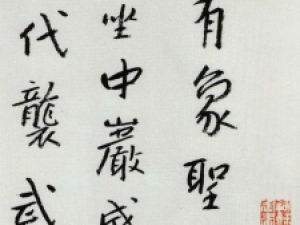 有象聖
坐中嚴威
代襲武